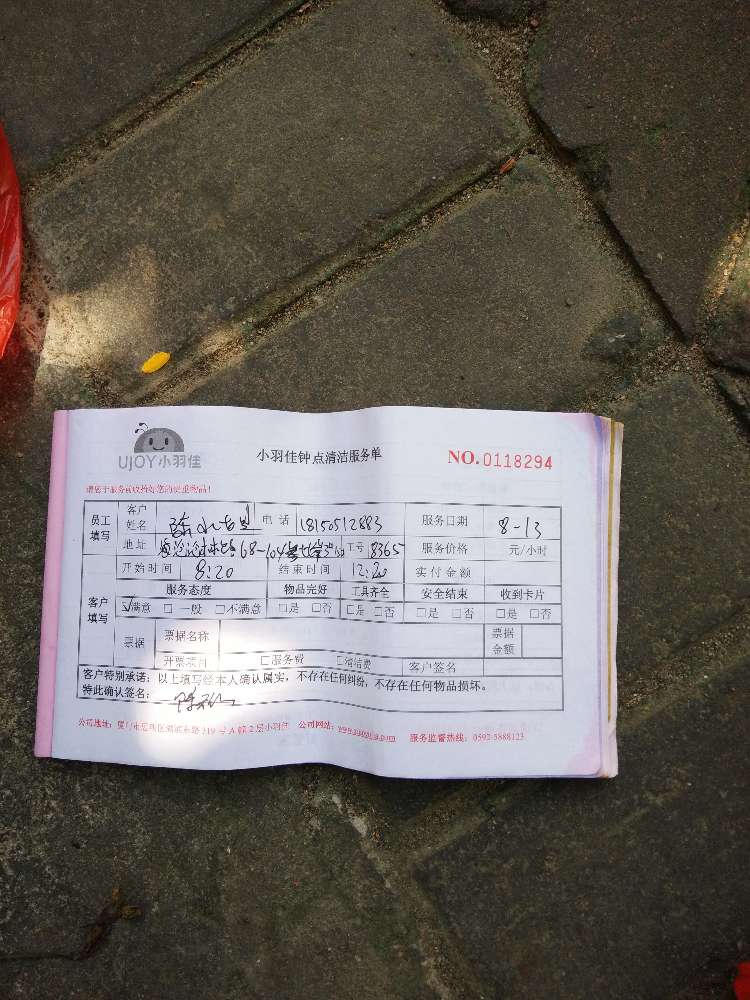 UJOY小羽佳
小羽佳钟点清洁服务单
NO.0118294
请您于服务前收拾好您的贵重物品！
员工填写 客户姓名 电话 18150512883 服务日期 8-13
地址 68-104 工号 8365 服务价格 元/小时
开始时间 8:20 结束时间 12:20 实付金额
客户填写 服务态度 物品完好 工具齐全 安全结束 收到卡片
☑满意 □一般 □不满意 □是 □否 □是 □否 □是 □否 □是 □否
票据 票据名称 票据金额
开票项目 □服务费 □清洁费 客户签名
客户特别承诺：以上填写经本人确认属实，不存在任何纠纷，不存在任何物品损坏。
特此确认签名：
公司地址：厦门市思明区湖滨东路319号A幢2层小羽佳 公司网站： 服务监督热线：0592-5888123